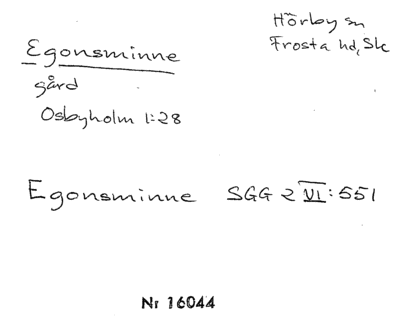 Egonsminne
gård
Osbyholm 1:28
Hörby sn
Frosta hd, Sk
Egonsminne SGG 2 VI:551
Nr 16044